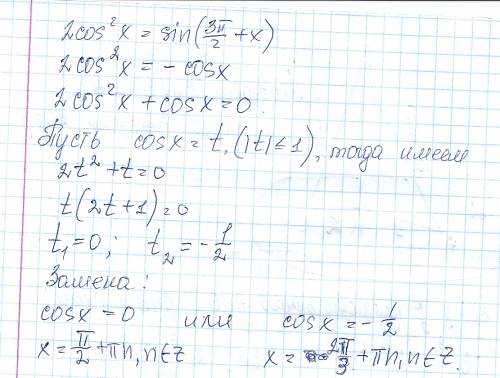 2cos²x = sin(3π/2 + x)
2cos²x = - cosx
2cos²x + cosx = 0
Пусть cosx = t, (|t| ≤ 1), тогда имеем
2t² + t = 0
t(2t+1) = 0
t₁ = 0; t₂ = - 1/2
Замена:
cosx = 0 или cosx = - 1/2
x = π/2 + πn, n∈Z x = 2π/3 + πn, n∈Z.